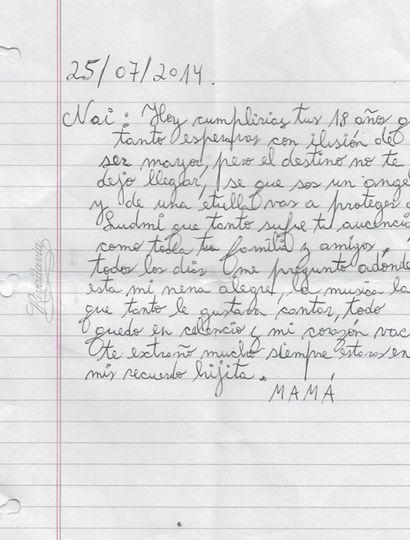 25/07/2014.
Nai: Hoy cumplirias tus 18 años q
tanto esperavas con ilusión de
ser mayor, pero el destino no te
dejo llegar, se que sos un ange
y de una etrlla vas a proteger a
Ludmi que tanto sufre tu aucencia
como toda tu familia y amigos.
todos los dias me pregunto adónde
esta mi nena alegre, la musica la
que tanto le gustava cantar, todo
quedo en celencio y mi corazón vac
te extraño mucho siempre estaras en
mis recuerdo hijita.
MAMÁ
Rivadavia